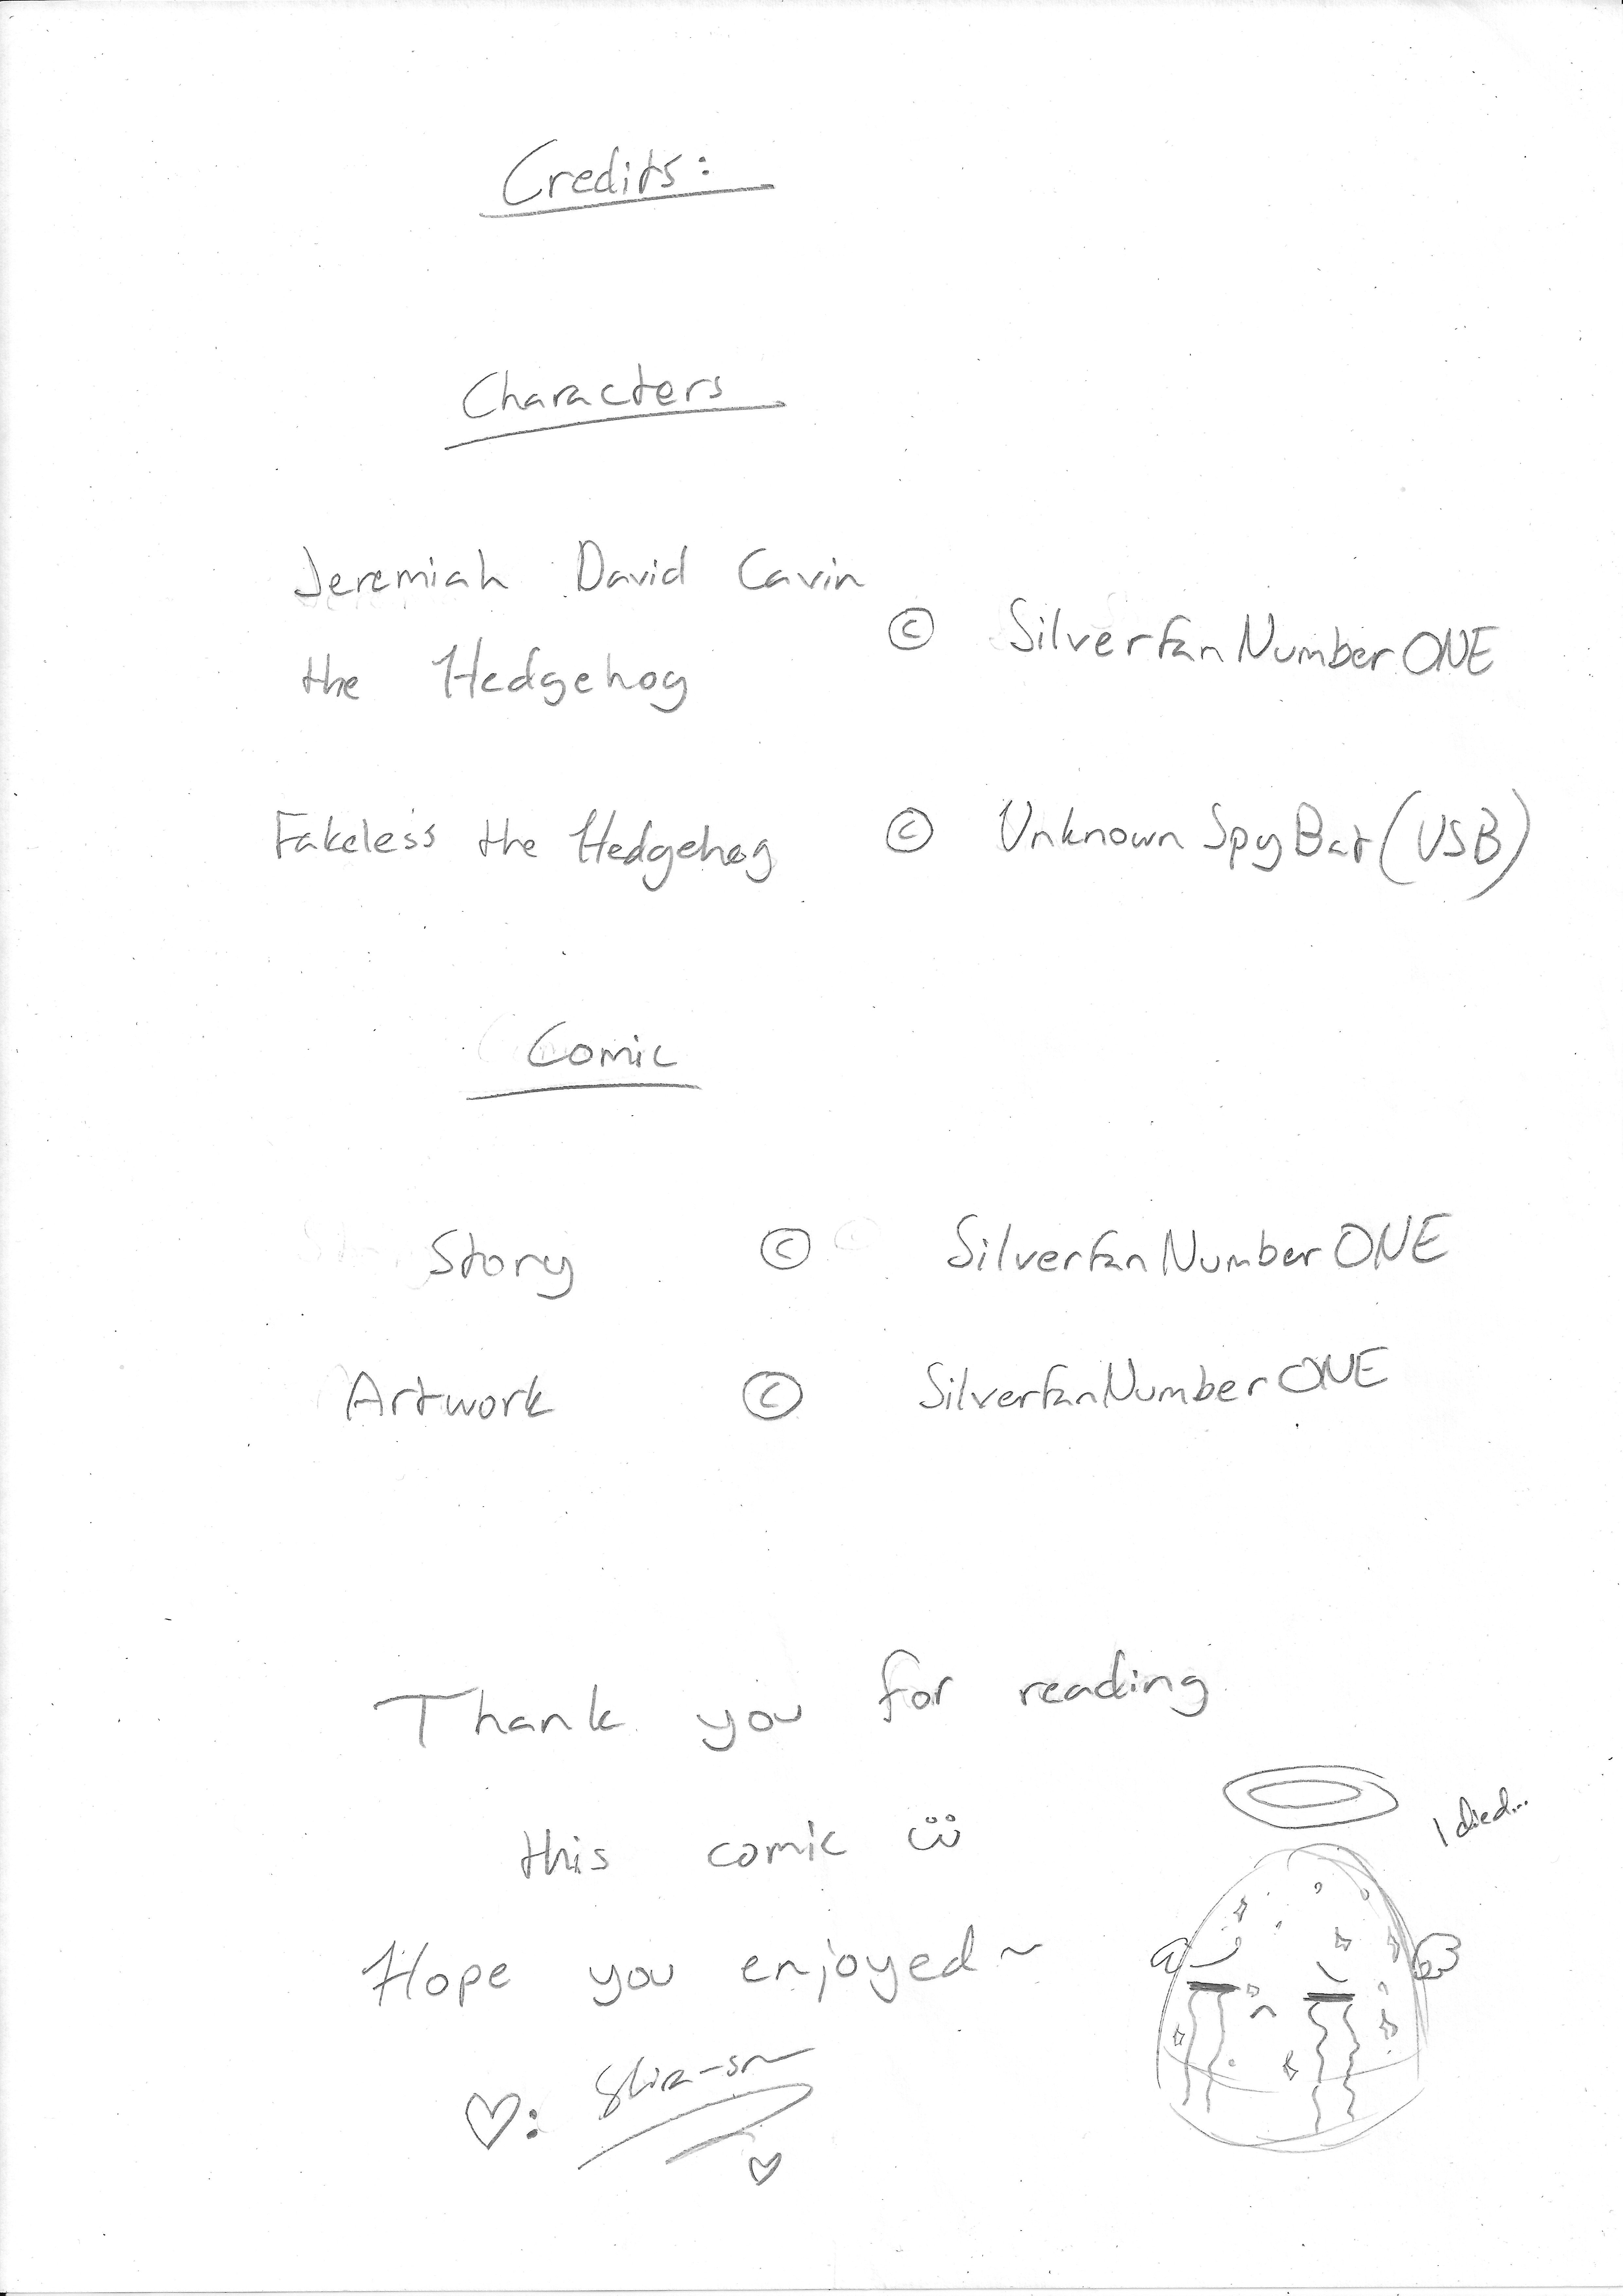 Credits:
Characters
Jeremiah David Cavin
the Hedgehog
© SilverfanNumberONE
Fakeless the Hedgehog © UnknownSpyBat (USB)
Comic
Story © SilverfanNumberONE
Artwork © SilverfanNumberONE
Thank you for reading
this comic
I died...
Hope you enjoyed~